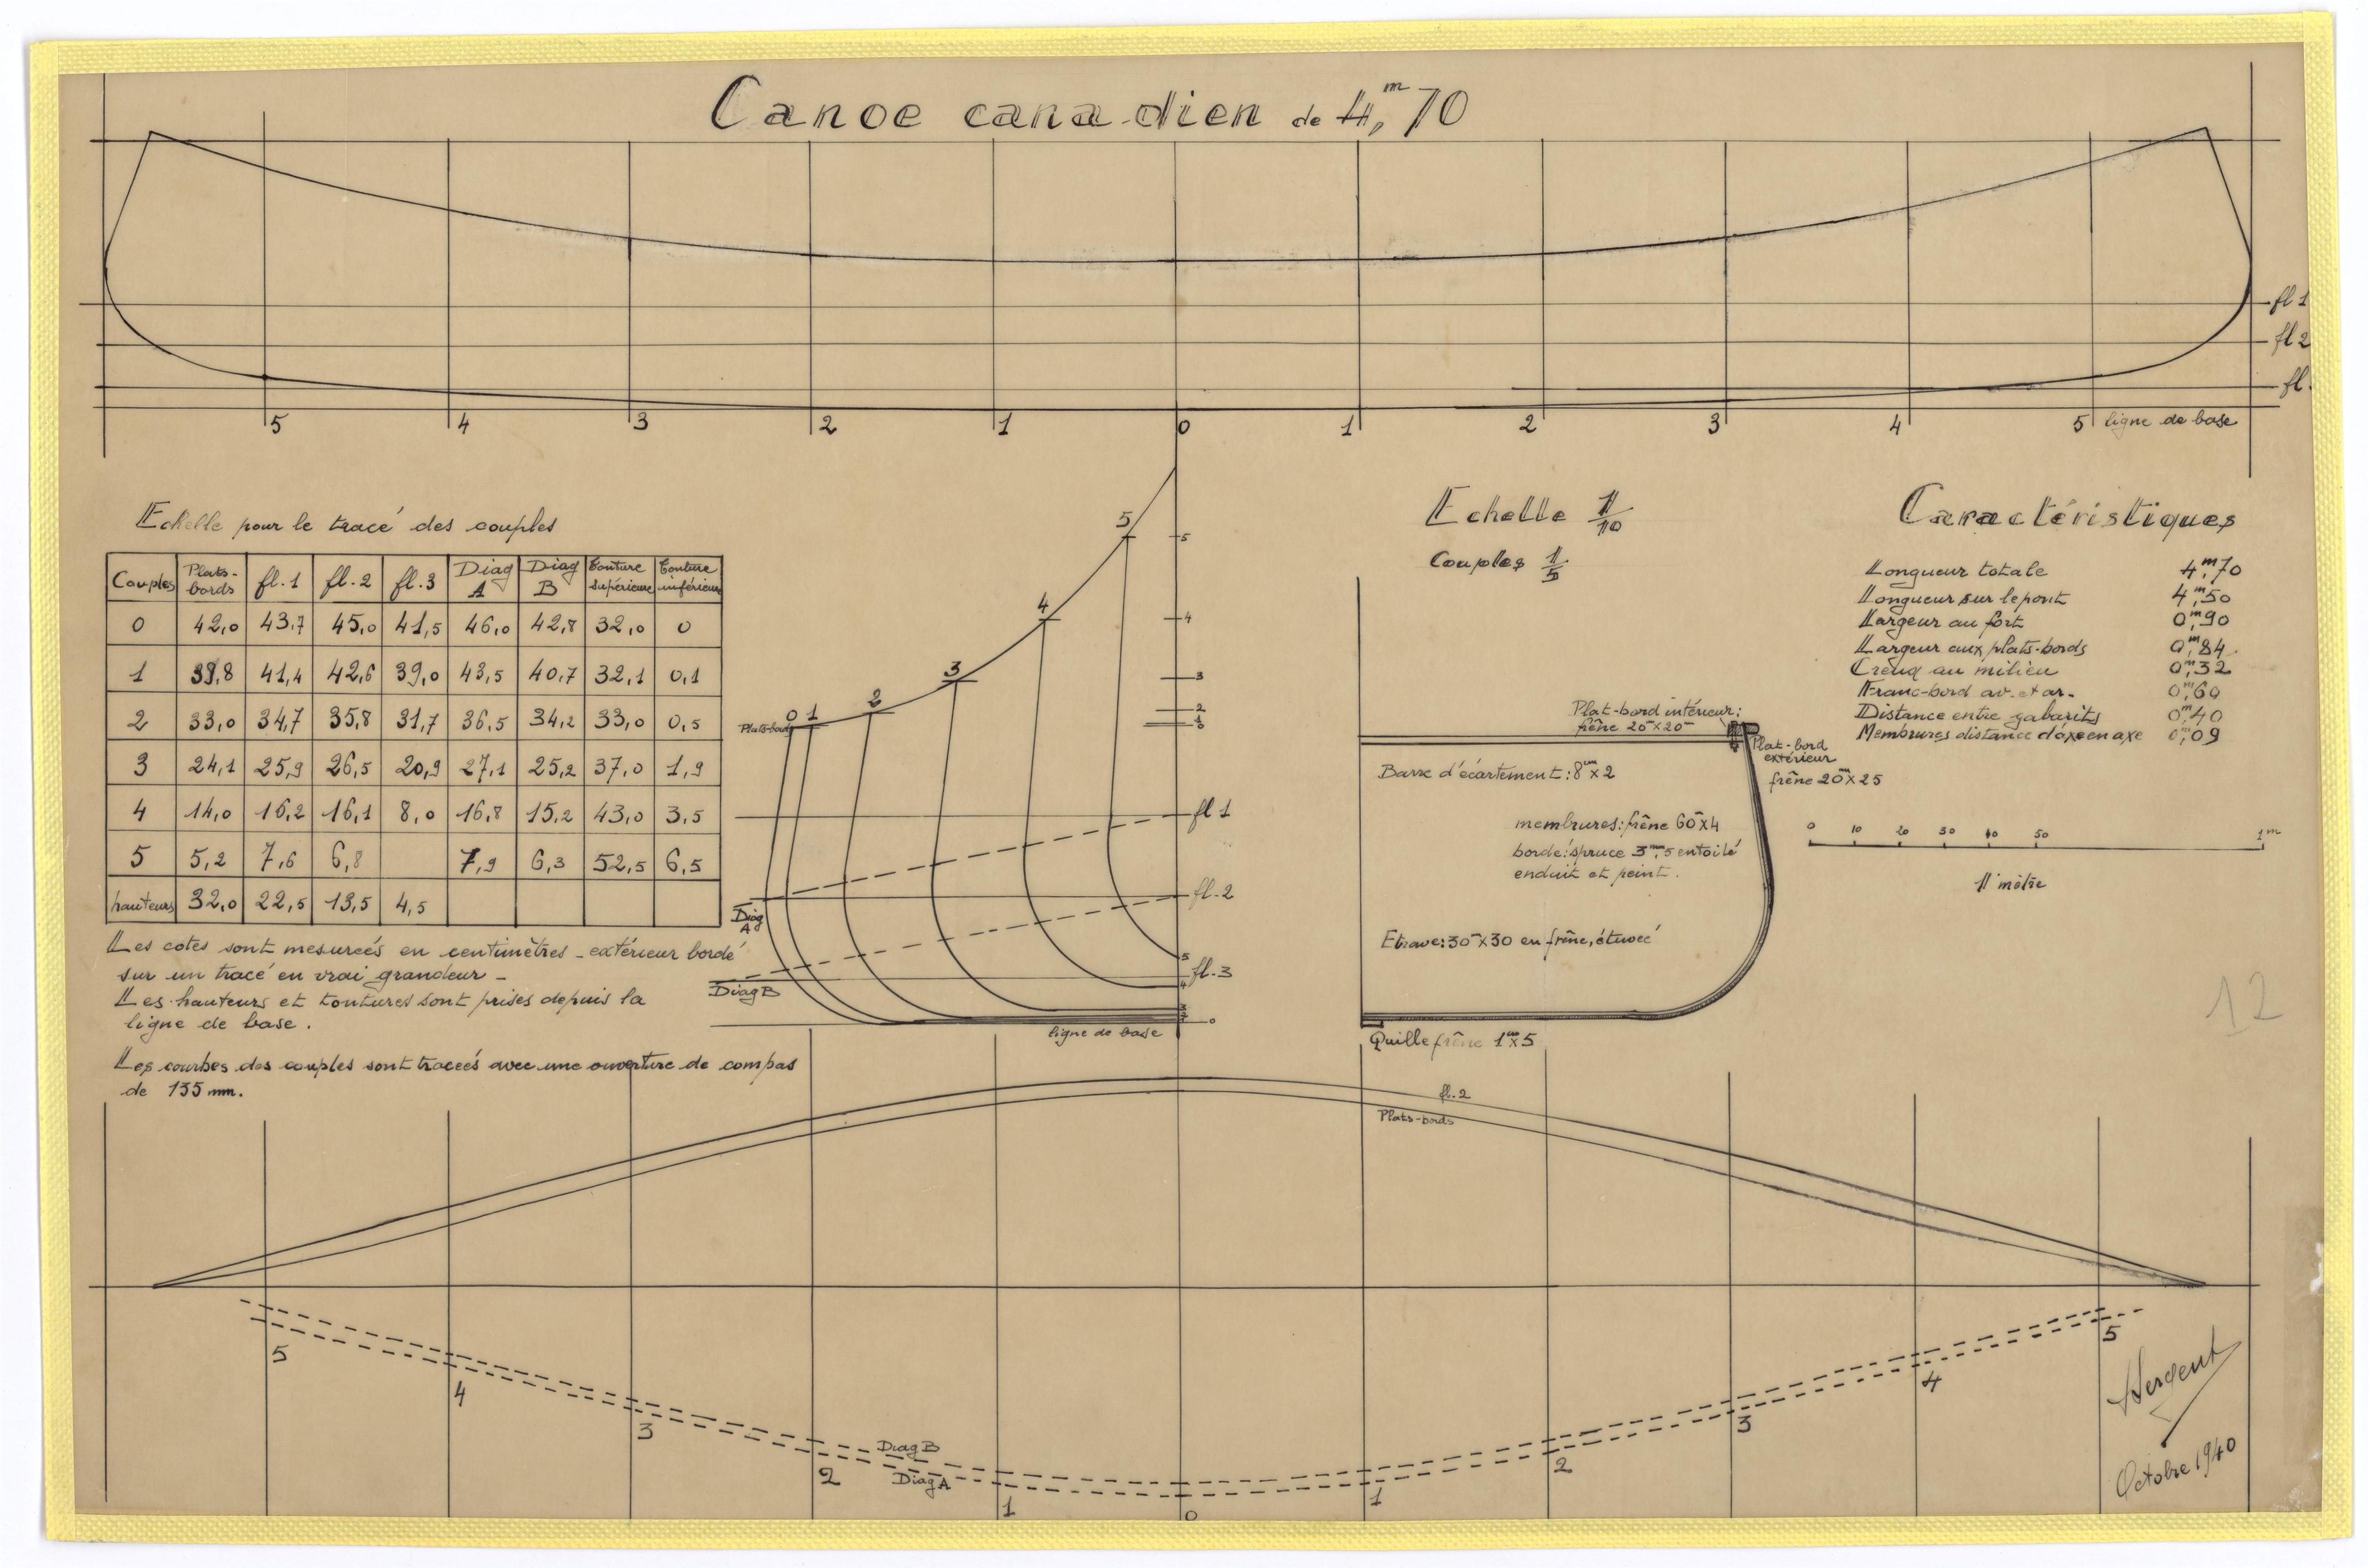 Canoe canadien de 4,ᵐ70
fl 1
fl 2
fl.
5 4 3 2 1 0 1 2 3 4 5 ligne de base
Echelle pour le tracé des couples
Couples Plats-bords fl.1 fl.2 fl.3 Diag A Diag B Tonture supérieure Tonture inférieure
0 42,0 43,7 45,0 41,5 46,0 42,8 32,0 0
1 39,8 41,4 42,6 39,0 43,5 40,7 32,1 0,1
2 33,0 34,7 35,8 31,7 36,5 34,2 33,0 0,5
3 24,1 25,9 26,5 20,9 27,1 25,2 37,0 1,9
4 14,0 16,2 16,1 8,0 16,8 15,2 43,0 3,5
5 5,2 7,6 6,8 7,9 6,3 52,5 6,5
hauteurs 32,0 22,5 13,5 4,5
Les cotes sont mesurées en centimètres - extérieur bordé
sur un tracé en vrai grandeur -
Les hauteurs et tontures sont prises depuis la
ligne de base.
Les courbes des couples sont tracées avec une ouverture de compas
de 135 mm.
5
4
3
2
0 1
Plats-bords
5
4
3
2
1
0
fl 1
fl.2
fl.3
Diag A
Diag B
5
4
3
0
ligne de base
Echelle 1/10
Couples 1/5
Plat-bord intérieur:
frêne 20ᵐ×20
Plat-bord
extérieur
frêne 20ᵐ×25
Barre d'écartement: 8ᶜᵐ×2
membrures: frêne 60ᵐ×4
bordé: spruce 3ᵐᵐ,5 entoilé
enduit et peint.
Etrave: 30ᵐ×30 en frêne, étuvée
Quille frêne 1ᶜᵐ×5
Caractéristiques
Longueur totale 4,ᵐ70
Longueur sur le pont 4,ᵐ50
Largeur au fort 0,ᵐ90
Largeur aux plats-bords 0,ᵐ84
Creux au milieu 0,ᵐ32
Franc-bord av. et ar. 0,ᵐ60
Distance entre gabarits 0,ᵐ40
Membrures distance d'axe en axe 0,ᵐ09
0 10 20 30 40 50 1ᵐ
1 mètre
12
fl.2
Plats-bords
Diag B
Diag A
5 4 3 2 1 0 1 2 3 4 5
Sergent
Octobre 1940